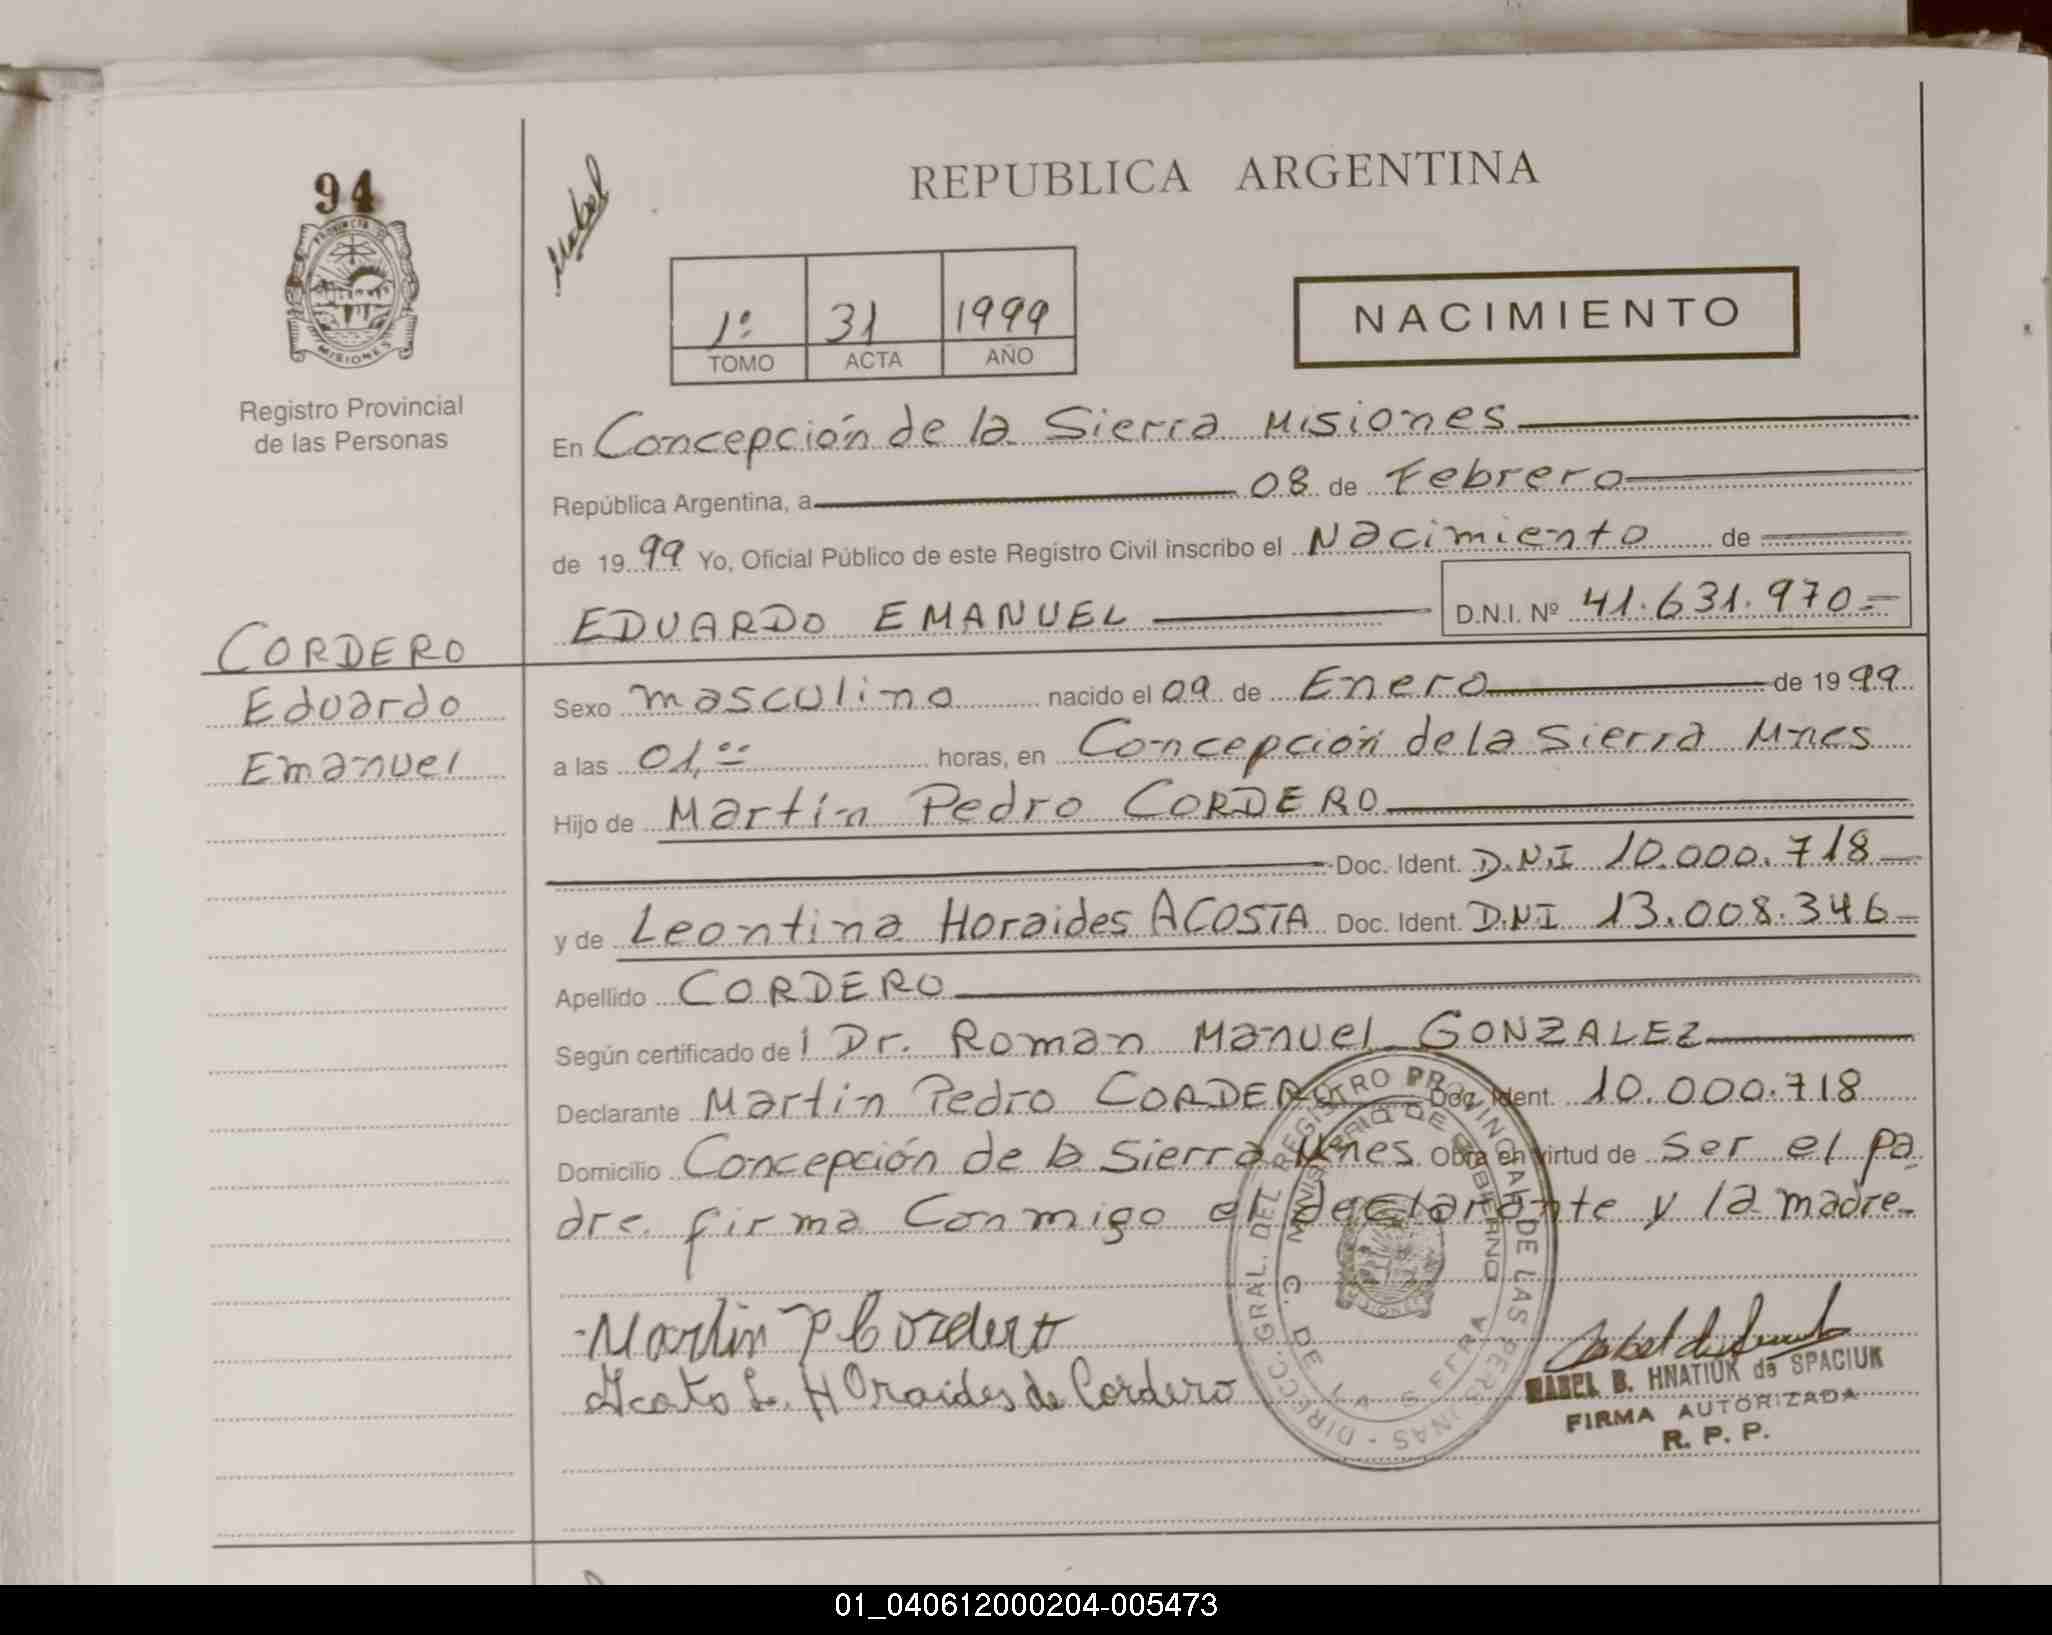 94
PROVINCIA DE
MISIONES
Registro Provincial
de las Personas
CORDERO
Eduardo
Emanuel
Mabel
REPUBLICA ARGENTINA
1º 31 1999
TOMO ACTA AÑO
NACIMIENTO
En Concepción de la Sierra Misiones
República Argentina, a 08 de Febrero
de 1999 Yo, Oficial Público de este Registro Civil inscribo el Nacimiento de
EDUARDO EMANUEL D.N.I. Nº 41.631.970.=
Sexo masculino nacido el 09 de Enero de 1999
a las 01,00 horas, en Concepción de la Sierra Mnes
Hijo de Martín Pedro CORDERO
Doc. Ident. D.N.I 10.000.718
y de Leontina Horaides ACOSTA Doc. Ident. D.N.I 13.008.346
Apellido CORDERO
Según certificado del Dr. Roman Manuel GONZALEZ
Declarante Martin Pedro CORDERO Doc. Ident. 10.000.718
Domicilio Concepción de la Sierra Mnes Obra en virtud de Ser el pa
dre. firma Conmigo el declarante y la madre.
Martin P Cordero
L. HOraides de Cordero
DIRECC. GRAL. DEL REGISTRO PROVINCIAL DE LAS PERSONAS -
MINISTERIO DE GOBIERNO
C. DE LA SIERRA
MISIONES
MABEL B. HNATIUK de SPACIUK
FIRMA AUTORIZADA
R. P. P.
01_040612000204-005473